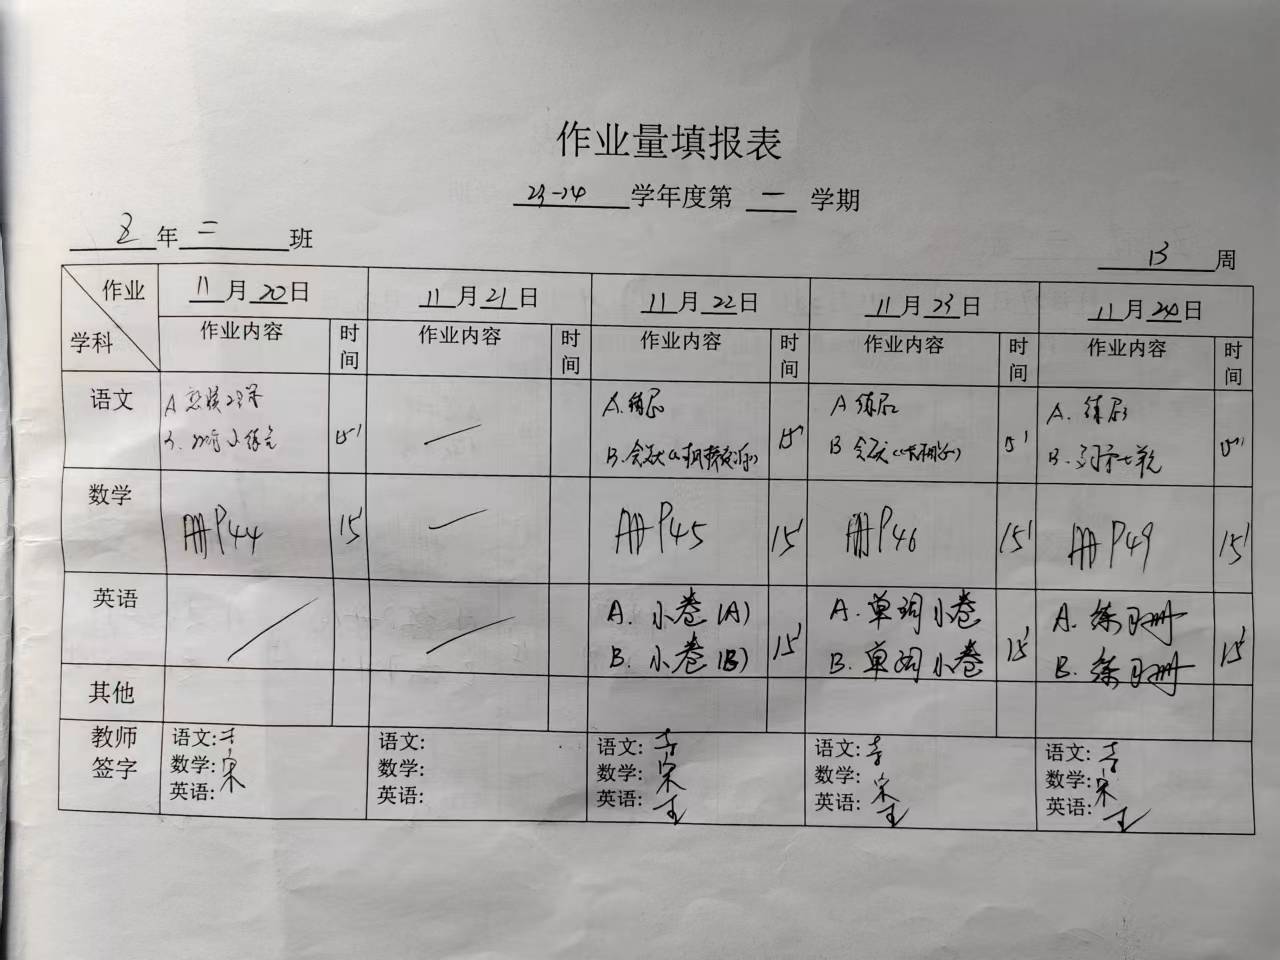 作业量填报表
23-24 学年度第 一 学期
五 年 二 班
13 周
作业
学科
11 月 20 日
11 月 21 日
11 月 22 日
11 月 23 日
11 月 24 日
作业内容 时间 作业内容 时间 作业内容 时间 作业内容 时间 作业内容 时间
语文
A
B.
15'
A. 练习
B.
15'
A 练习
B
15'
A. 练习
B.
15'
数学
册P44 15'
册P45 15'
册P46 15'
册P49 15'
英语
A. 小卷(A)
B. 小卷(B)
15'
A. 单词小卷
B. 单词小卷
15'
A. 练习册
B. 练习册
15'
其他
教师签字
语文:
数学: 宋
英语:
语文:
数学:
英语:
语文:
数学: 宋
英语: 王
语文:
数学: 宋
英语: 王
语文:
数学: 宋
英语: 王